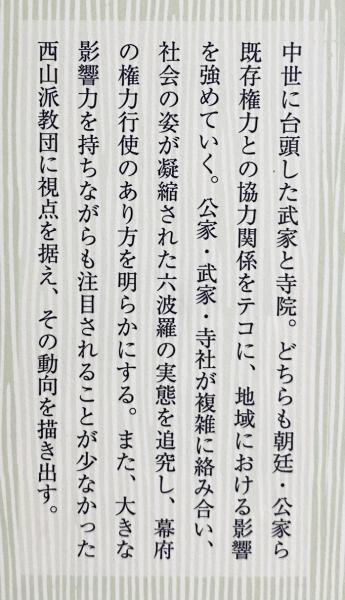 中世に台頭した武家と寺院。どちらも朝廷・公家ら
既存権力との協力関係をテコに、地域における影響
を強めていく。公家・武家・寺社が複雑に絡み合い、
社会の姿が凝縮された六波羅の実態を追究し、幕府
の権力行使のあり方を明らかにする。また、大きな
影響力を持ちながらも注目されることが少なかった
西山派教団に視点を据え、その動向を描き出す。